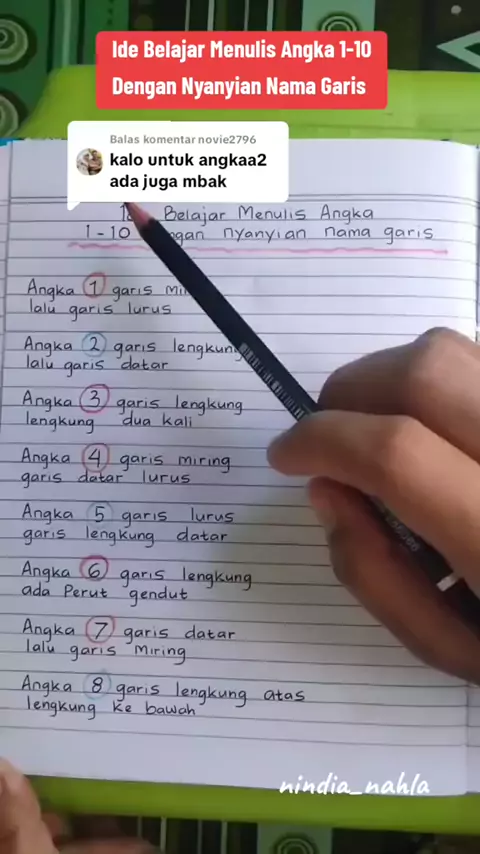 Ide Belajar Menulis Angka 1-10
Dengan Nyanyian Nama Garis
Balas komentar novie2796
kalo untuk angkaa2
ada juga mbak
Belajar Menulis Angka
1-10 nyanyian nama garis
Angka 1 garis
lalu garis lurus
Angka 2 garis lengkung
lalu garis datar
Angka 3 garis lengkung
lengkung dua kali
Angka 4 garis miring
garis datar lurus
Angka 5 garis lurus
garis lengkung datar
Angka 6 garis lengkung
ada Perut gendut
Angka 7 garis datar
lalu garis Miring
Angka 8 garis lengkung atas
lengkung ke bawah
nindia_nahla